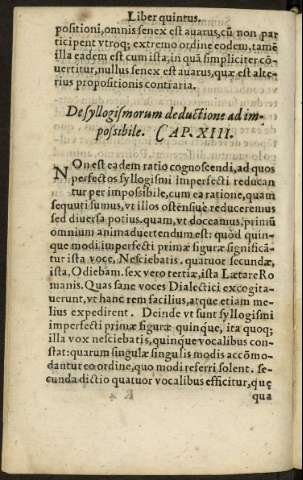 Liber quintus.
positioni, omnis senex est auarus, cũ non par
ticipent vtroq; extremo ordine eodem, tamẽ
illa eadem est cum ista, in quã simpliciter cõ-
uertitur, nullus senex est auarus, quæ est alte-
rius propositionis contraria.
De syllogismorum deductione ad im-
possibile. CAP. XIII.
NOn est eadem ratio cognoscendi, ad quos
perfectos syllogismi imperfecti reducan
tur per impossibile, cum ea ratione, quam
sequuti sumus, vt illos ostensiuè reduceremus
sed diuersa potius. quam, vt doceamus, primũ
omnium animaduertendum est: quòd quin-
que modi imperfecti primæ figuræ significã-
tur ista voce, Nesciebatis. quatuor secundæ,
ista, Odiebam. sex vero tertiæ, ista Lætare Ro
manis. Quas sane voces Dialectici excogita-
uerunt, vt hanc rem facilius, atque etiam me-
lius expedirent. Deinde vt sunt syllogismi
imperfecti primæ figuræ quinque, ita quoq;
illa vox nesciebatis, quinque vocalibus con-
stat: quarum singulæ singulis modis accõmo-
dantur eo ordine, quo modi referri solent. se-
cunda dictio quatuor vocalibus efficitur, quę
qua